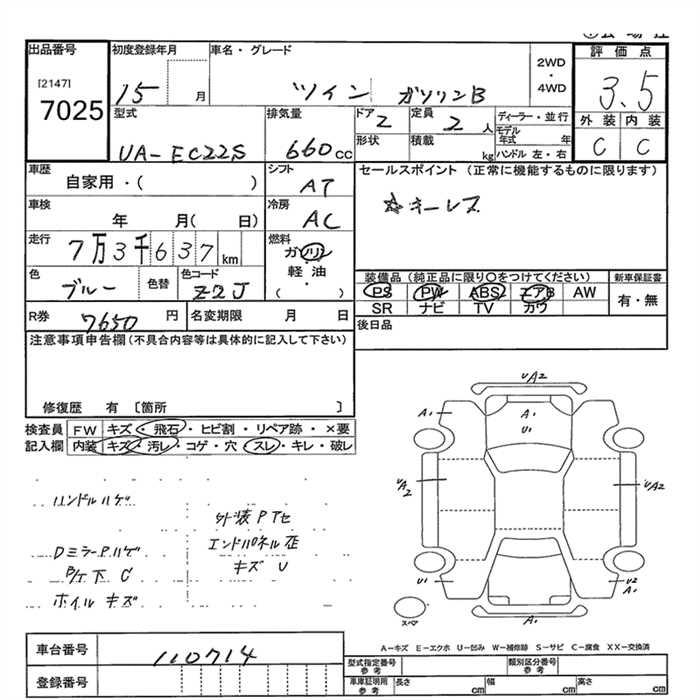 出品番号 初度登録年月 車名・グレード 2WD ・ 4WD 評価点
[2147]
7025 15 月 ツイン ガソリンB 3.5
型式 排気量 ドア 2 定員 2 人 ディーラー・並行 外装 内装
UA-EC22S 660cc 形状 積載 kg モデル年式 年 C C
ハンドル 左・右
車歴 自家用・( ) シフト AT セールスポイント (正常に機能するものに限ります)
車検 年 月( 日) 冷房 AC ☆キーレス
走行 7万3千637km 燃料 ガソリン 軽油 ・ ( )
色 ブルー 色替 色コード Z2J 装備品 (純正品に限り○をつけてください) 新車保証書
PS PW ABS エアB AW 有・無
SR ナビ TV カワ
R券 7650円 名変期限 月 日 後日品
注意事項申告欄(不具合内容等は具体的に記入して下さい)
修復歴 有 [箇所 ]
検査員 FW キズ・飛石・ヒビ割・リペア跡・×要
記入欄 内装 キズ・汚レ・コゲ・穴・スレ・キレ・破レ
ハンドルハゲ
外装Pアセ
Dミラー P.ハゲ エンドパネル歪
B/ケ下 C キズ U
ホイルキズ
UA2
A1 A1
U1
UA2 UA2
U1 U2
A1
スペア A1
A-キズ E-エクボ U-凹み W-補修跡 S-サビ C-腐食 XX-交換済
車台番号 110714
型式指定番号 参考 類別区分番号 参考
登録番号 車庫証明用 参考 長さ cm 幅 cm 高さ cm